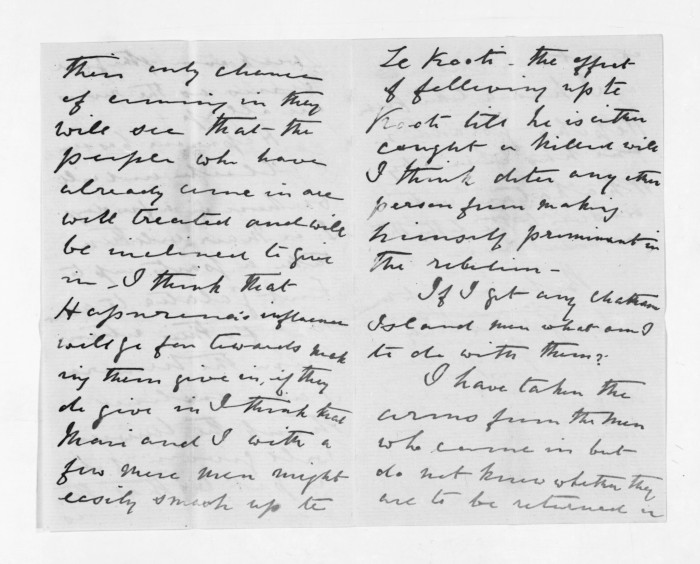 their only chance
of coming in they
will see that the
people who have
already come in are
well treated and will
be inclined to give
in - I think that
Hapurona's influence
will go far towards mak
ing them give in, if they
do give in I think that
Mair and I with a
few more men might
easily smash up te
Te Kooti - the effect
of following up te
Kooti till he is either
caught or killed will
I think deter any other
person from making
himself prominant in
the rebelion -
If I get any chatham
Island men what am I
to do with them?
I have taken the
arms from the men
who came in but
do not know whether they
are to be returned or